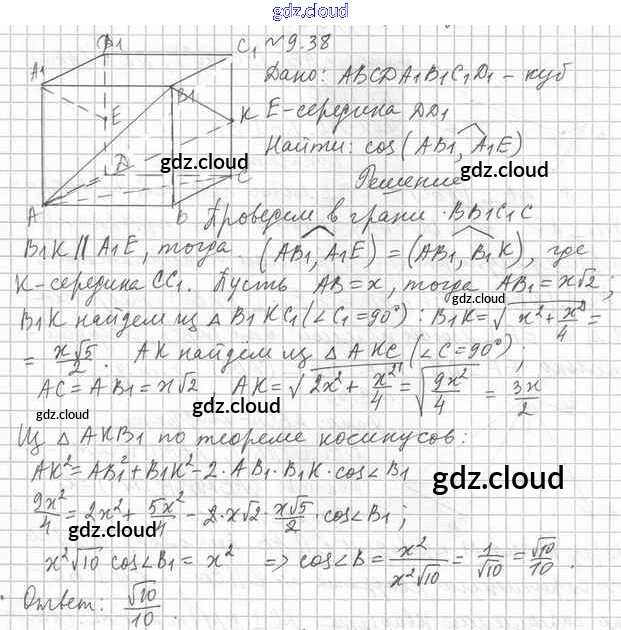 gdz.cloud
D1 C1 №9.38
A1 B1 Дано: ABCDA1B1C1D1 - куб
E K E-середина DD1
gdz.cloud
D C Найти: cos(AB1, A1E)
gdz.cloud gdz.cloud
Решение
A B Проведем в грани BB1C1C
B1K || A1E, тогда (AB1, A1E) = (AB1, B1K), где
K-середина CC1. Пусть AB = x, тогда AB1 = x√2;
gdz.cloud
B1K найдем из △ B1KC1 (∠C1 = 90°): B1K = √(x² + x²/4) =
= x√5/2. AK найдем из △ AKC (∠C = 90°),
AC = AB1 = x√2, AK = √(2x² + x²/4) = √(9x²/4) = 3x/2
gdz.cloud gdz.cloud
Из △ AKB1 по теореме косинусов:
AK² = AB1² + B1K² - 2·AB1·B1K·cos∠B1
gdz.cloud
9x²/4 = 2x² + 5x²/4 - 2·x√2·x√5/2·cos∠B1;
gdz.cloud
x²√10 cos∠B1 = x² => cos∠B = x²/x²√10 = 1/√10 = √10/10.
Ответ: √10/10.
gdz.cloud gdz.cloud